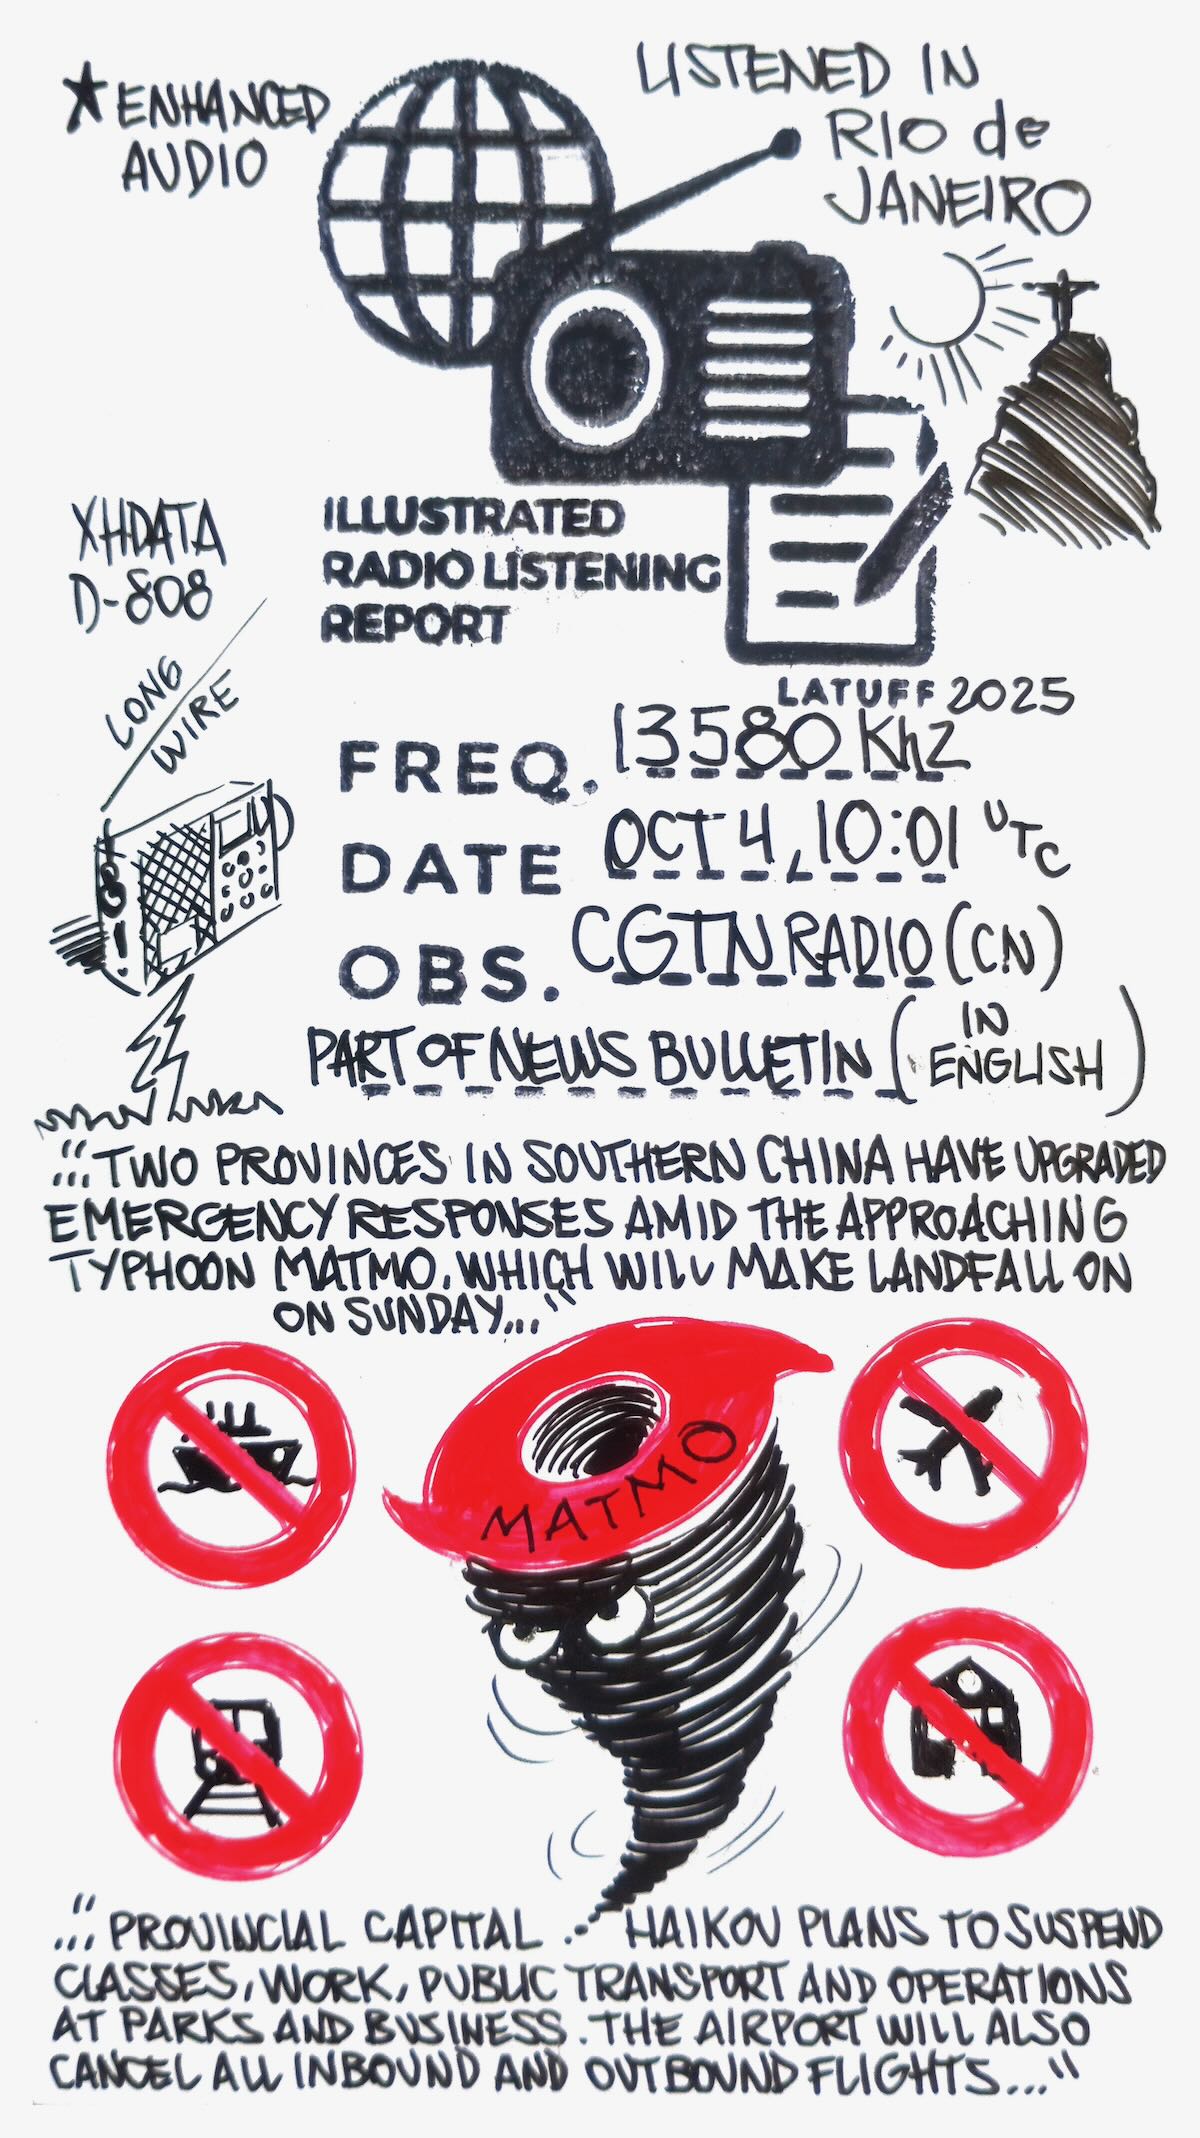 ★ ENHANCED
AUDIO
LISTENED IN
RIO de
JANEIRO
XHDATA
D-808
LONG
WIRE
ILLUSTRATED
RADIO LISTENING
REPORT
LATUFF 2025
FREQ. 13580 Khz
DATE OCT 4, 10:01 UTC
OBS. CGTN RADIO (CN)
PART OF NEWS BULLETIN (IN
ENGLISH)
"...TWO PROVINCES IN SOUTHERN CHINA HAVE UPGRADED
EMERGENCY RESPONSES AMID THE APPROACHING
TYPHOON MATMO, WHICH WILL MAKE LANDFALL ON
ON SUNDAY..."
MATMO
"...PROVINCIAL CAPITAL HAIKOU PLANS TO SUSPEND
CLASSES, WORK, PUBLIC TRANSPORT AND OPERATIONS
AT PARKS AND BUSINESS. THE AIRPORT WILL ALSO
CANCEL ALL INBOUND AND OUTBOUND FLIGHTS..."